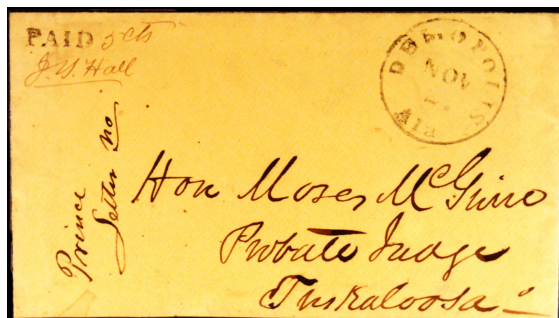 PAID 5 cts
J. Y. Hall
DEMOPOLIS
NOV
Ala
Prince
Letter no
Hon Moses McGuire
Probate Judge
Tuskaloosa